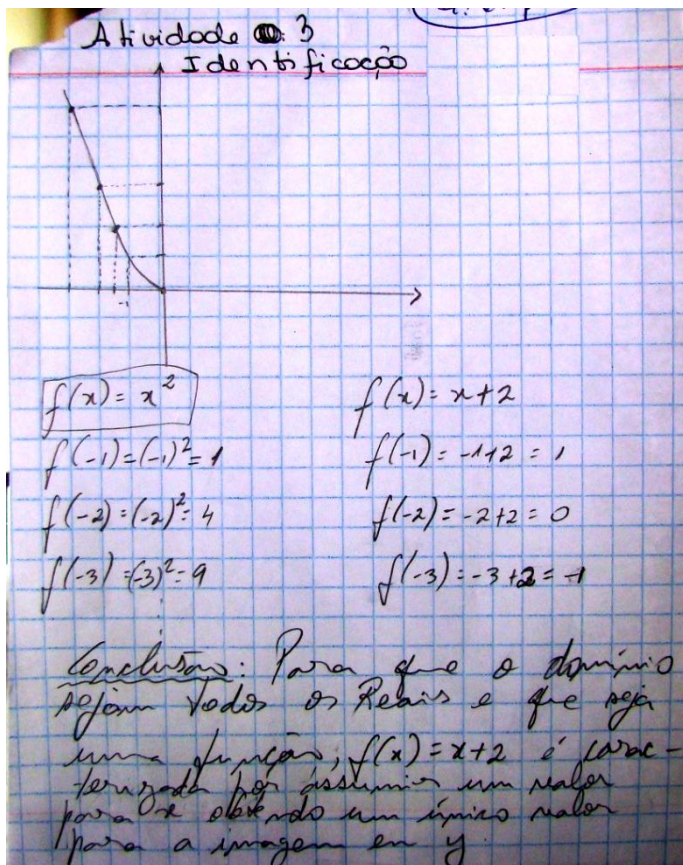 Atividade 3
Identificação
f(x) = x²
f(x) = x+2
f(-1) = (-1)² = 1
f(-1) = -1+2 = 1
f(-2) = (-2)² = 4
f(-2) = -2+2 = 0
f(-3) = (-3)² = 9
f(-3) = -3+2 = -1
Conclusão: Para que o domínio
sejam todos os Reais e que seja
uma função, f(x) = x+2 é carac-
terizada por assumir um valor
para x obtendo um único valor
para a imagem em y